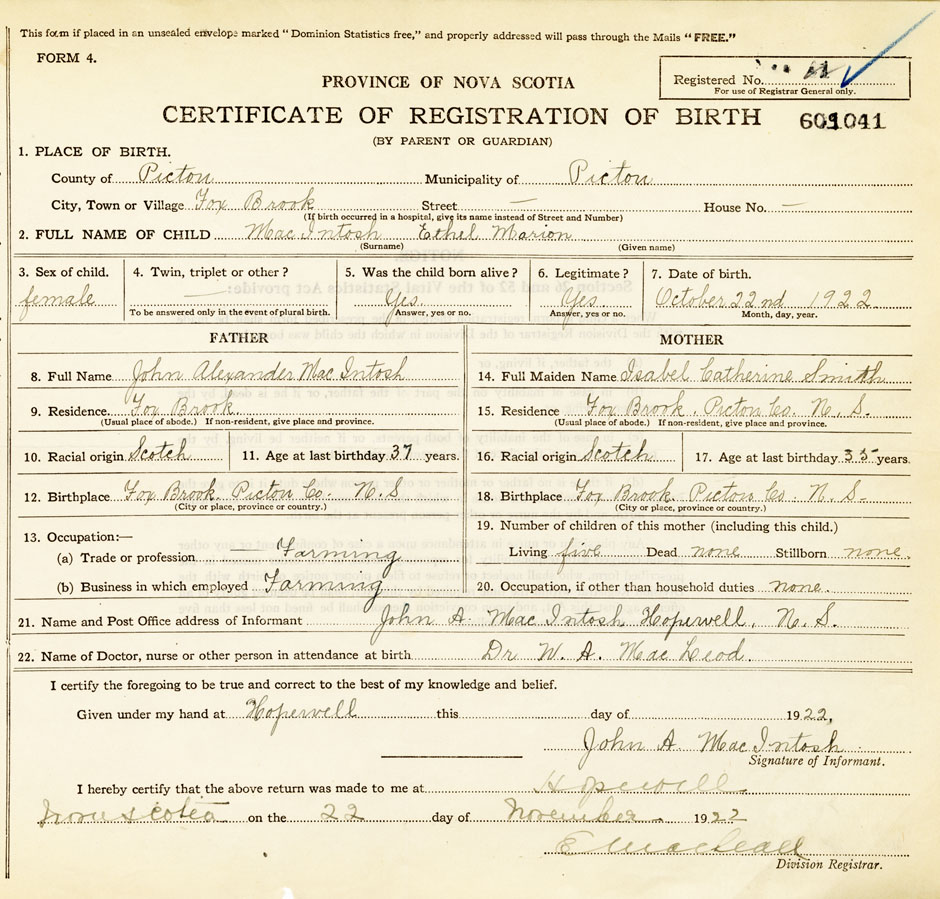 This form if placed in an unsealed envelope marked "Dominion Statistics free," and properly addressed will pass through the Mails "FREE."
FORM 4.
Registered No.
For use of Registrar General only.
PROVINCE OF NOVA SCOTIA
CERTIFICATE OF REGISTRATION OF BIRTH 601041
(BY PARENT OR GUARDIAN)
1. PLACE OF BIRTH.
County of Picton Municipality of Picton
City, Town or Village Fox Brook Street — House No. —
(If birth occurred in a hospital, give its name instead of Street and Number)
2. FULL NAME OF CHILD Mac Intosh Ethel Marion
(Surname) (Given name)
3. Sex of child. 4. Twin, triplet or other? 5. Was the child born alive? 6. Legitimate? 7. Date of birth.
female — Yes. Yes. October 22nd 1922
To be answered only in the event of plural birth. Answer, yes or no. Answer, yes or no. Month, day, year.
FATHER MOTHER
8. Full Name John Alexander Mac Intosh 14. Full Maiden Name Isabel Catherine Smith
9. Residence. Fox Brook. 15. Residence Fox Brook. Picton Co. N. S.
(Usual place of abode.) If non-resident, give place and province. (Usual place of abode.) If non-resident, give place and province.
10. Racial origin Scotch 11. Age at last birthday 37 years. 16. Racial origin Scotch 17. Age at last birthday 35 years.
12. Birthplace Fox Brook Picton Co. N. S 18. Birthplace Fox Brook Picton Co. N. S.
(City or place, province or country.) (City or place, province or country.)
13. Occupation:— 19. Number of children of this mother (including this child.)
(a) Trade or profession Farming Living five Dead none Stillborn none.
(b) Business in which employed Farming 20. Occupation, if other than household duties none.
21. Name and Post Office address of Informant John A. Mac Intosh Hopewell, N. S.
22. Name of Doctor, nurse or other person in attendance at birth Dr. W. A. Mac Leod.
I certify the foregoing to be true and correct to the best of my knowledge and belief.
Given under my hand at Hopewell this day of 1922,
John A. Mac Intosh
Signature of Informant.
I hereby certify that the above return was made to me at Hopewell
Nova Scotia on the 22 day of November 1922
Division Registrar.